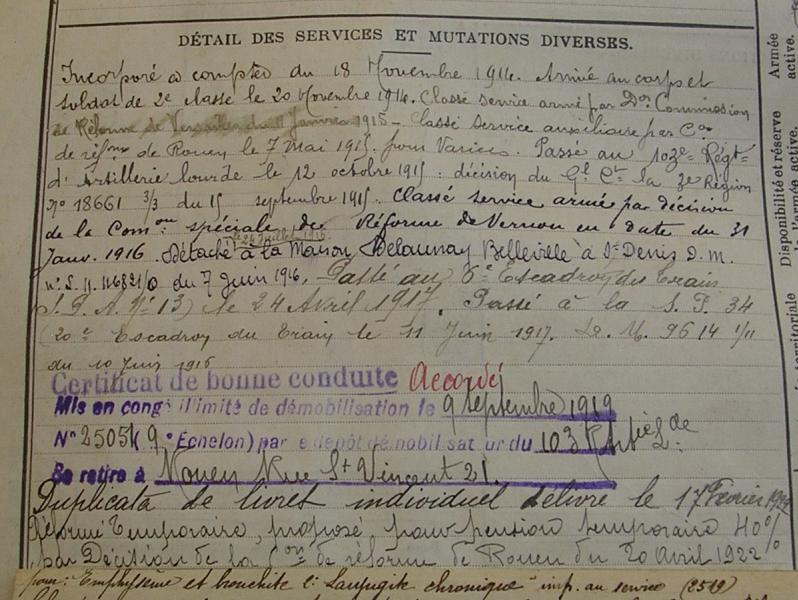 DÉTAIL DES SERVICES ET MUTATIONS DIVERSES.
Incorporé à compter du 18 Novembre 1914. Arrivé au corps et
soldat de 2e classe le 20 Novembre 1914. Classé service armé par Don Commission
de Réforme de Versailles du 11 Janvier 1915 - Classé service auxiliaire par Con
de réfme de Rouen le 7 Mai 1915. pour Varices. Passé au 103e Régt
d'Artillerie lourde le 12 octobre 1915 : décision du Gl Ct la 3e Région
N° 18661 3/3 du 15 septembre 1915. Classé service armé par décision
de la Comon spéciale de Réforme de Vernon en date du 31
Janv. 1916. Détaché à la Maison Delaunay Belleville à St Denis D. M.
juillet 1916
du 7 Juin 1916. Passé au Escadron du Train
(S.P.A. N° 13) le 24 Avril 1917. Passé à la S. P. 34
(20e Escadron du Train le 11 Juin 1917. M. 9614 1/11
du 10 Juin 1916
Certificat de bonne conduite Accordé
Mis en congé illimité de démobilisation le 9 septembre 1919
N° 2505 (9e Echelon) par le dépôt démobilisateur du 103 R Artie Lde
Se retire à Rouen Rue St Vincent 21.
Duplicata de livret individuel délivré le 17 Février
Réformé Temporaire, proposé pour pension temporaire 40%
par Décision de la Con de réforme de Rouen du 20 Avril 1922
pour : "Emphysème et bronchite chronique" imp. au service (2519)
Armée
active.
Disponibilité et réserve
de l'armée active.
territoriale